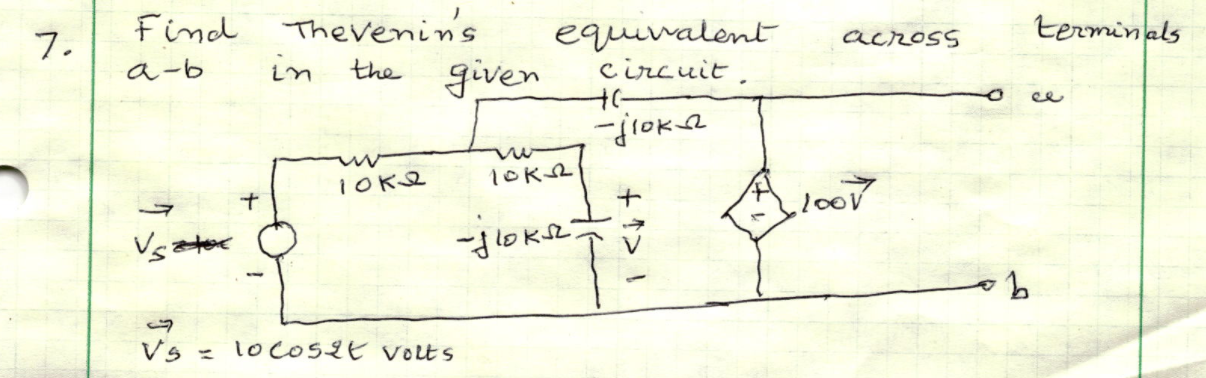 7. Find Thevenin's equivalent across terminals
a-b in the given circuit.
a
-j10KΩ
10KΩ 10KΩ
+ + + 100V
Vs -j10KΩ V -
- -
b
Vs = 10cos2t volts